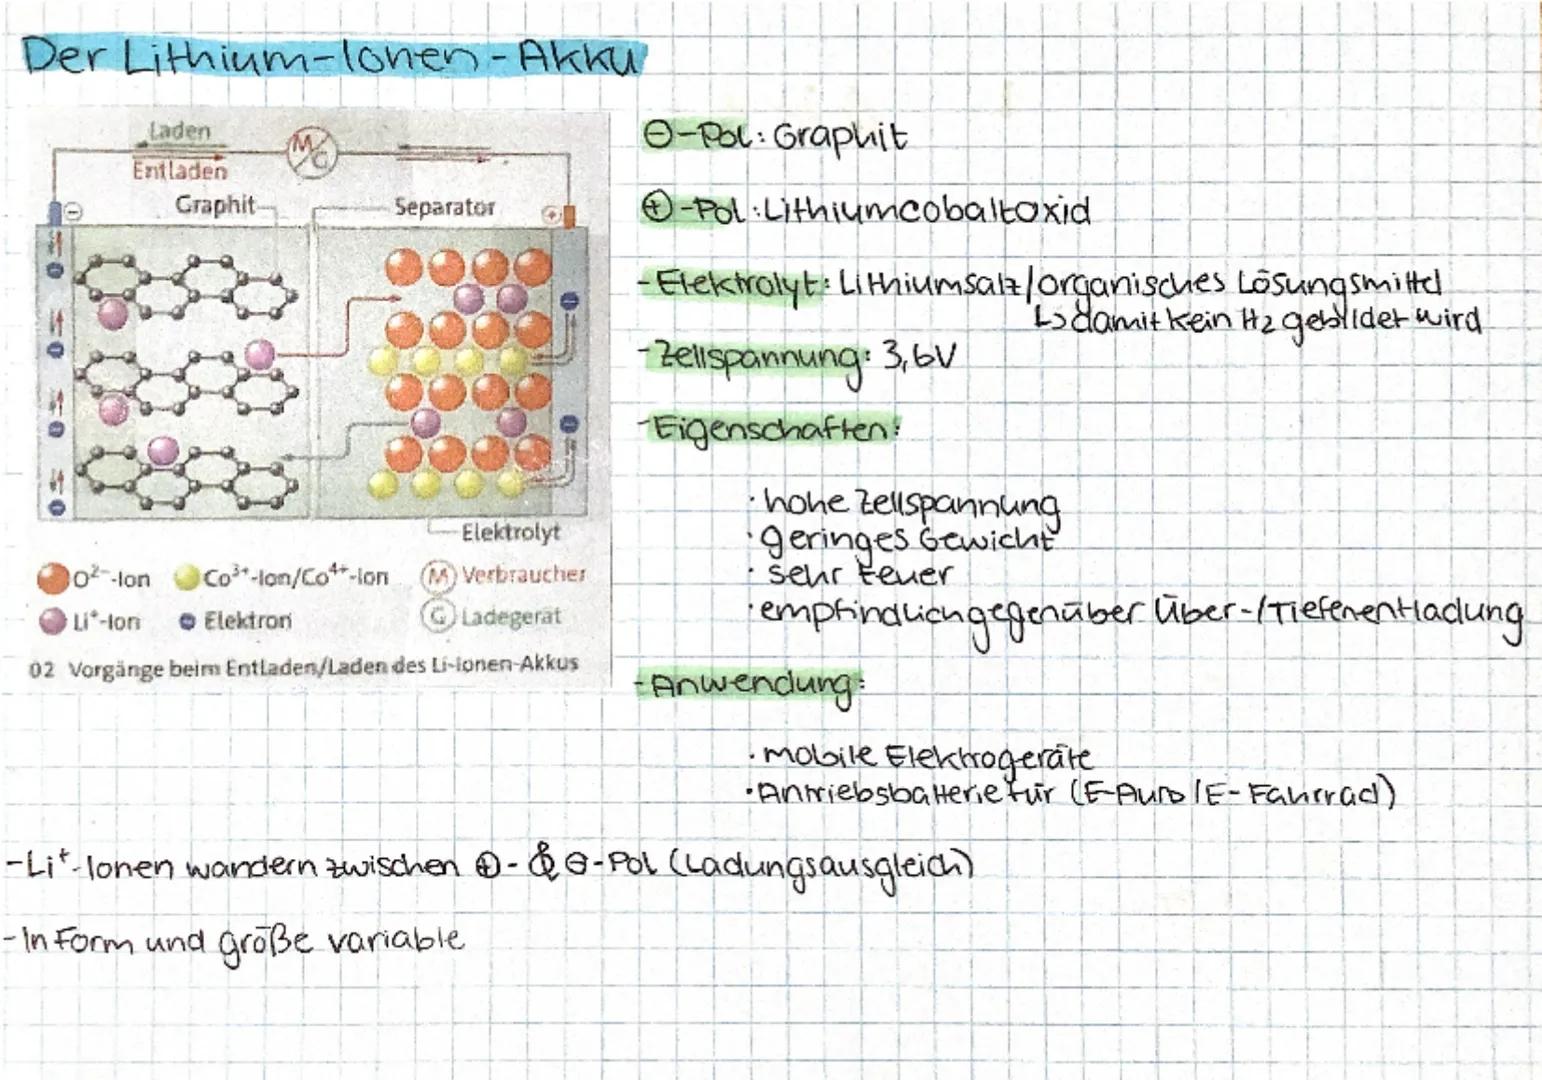 Der Lithium-Ionen-Akku
Laden
Entladen
M/G
Graphit
Separator
Elektrolyt
O²⁻-Ion
Co³⁺-Ion/Co⁴⁺-Ion
M Verbraucher
Li⁺-Ion
Elektron
G Ladegerät
02 Vorgänge beim Entladen/Laden des Li-Ionen-Akkus
⊖-Pol: Graphit
⊕-Pol: Lithiumcobaltoxid
-Elektrolyt: Lithiumsalz/organisches Lösungsmittel
↳ damit kein H₂ gebildet wird
-Zellspannung: 3,6V
-Eigenschaften:
· hohe Zellspannung
· geringes Gewicht
· sehr teuer
· empfindlich gegenüber Über-/Tiefenentladung
-Anwendung:
· mobile Elektrogeräte
· Antriebsbatterie für (E-Auto/E-Fahrrad)
-Li⁺-Ionen wandern zwischen ⊕- & ⊖-Pol (Ladungsausgleich)
-In Form und größe variable